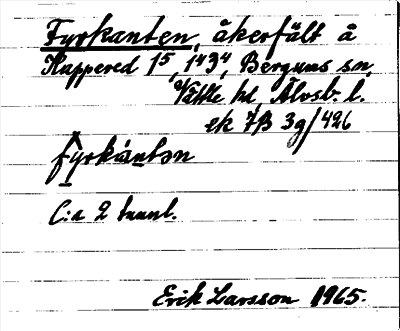 Fyrkanten, åkerfält å
Kappered 1⁵, 1⁴3⁴, Bergums sn,
Vättle hd, Älvsb. l.
ek 7B 3g/426
fyrkántən
C:a 2 tunnl.
Erik Larsson 1965.